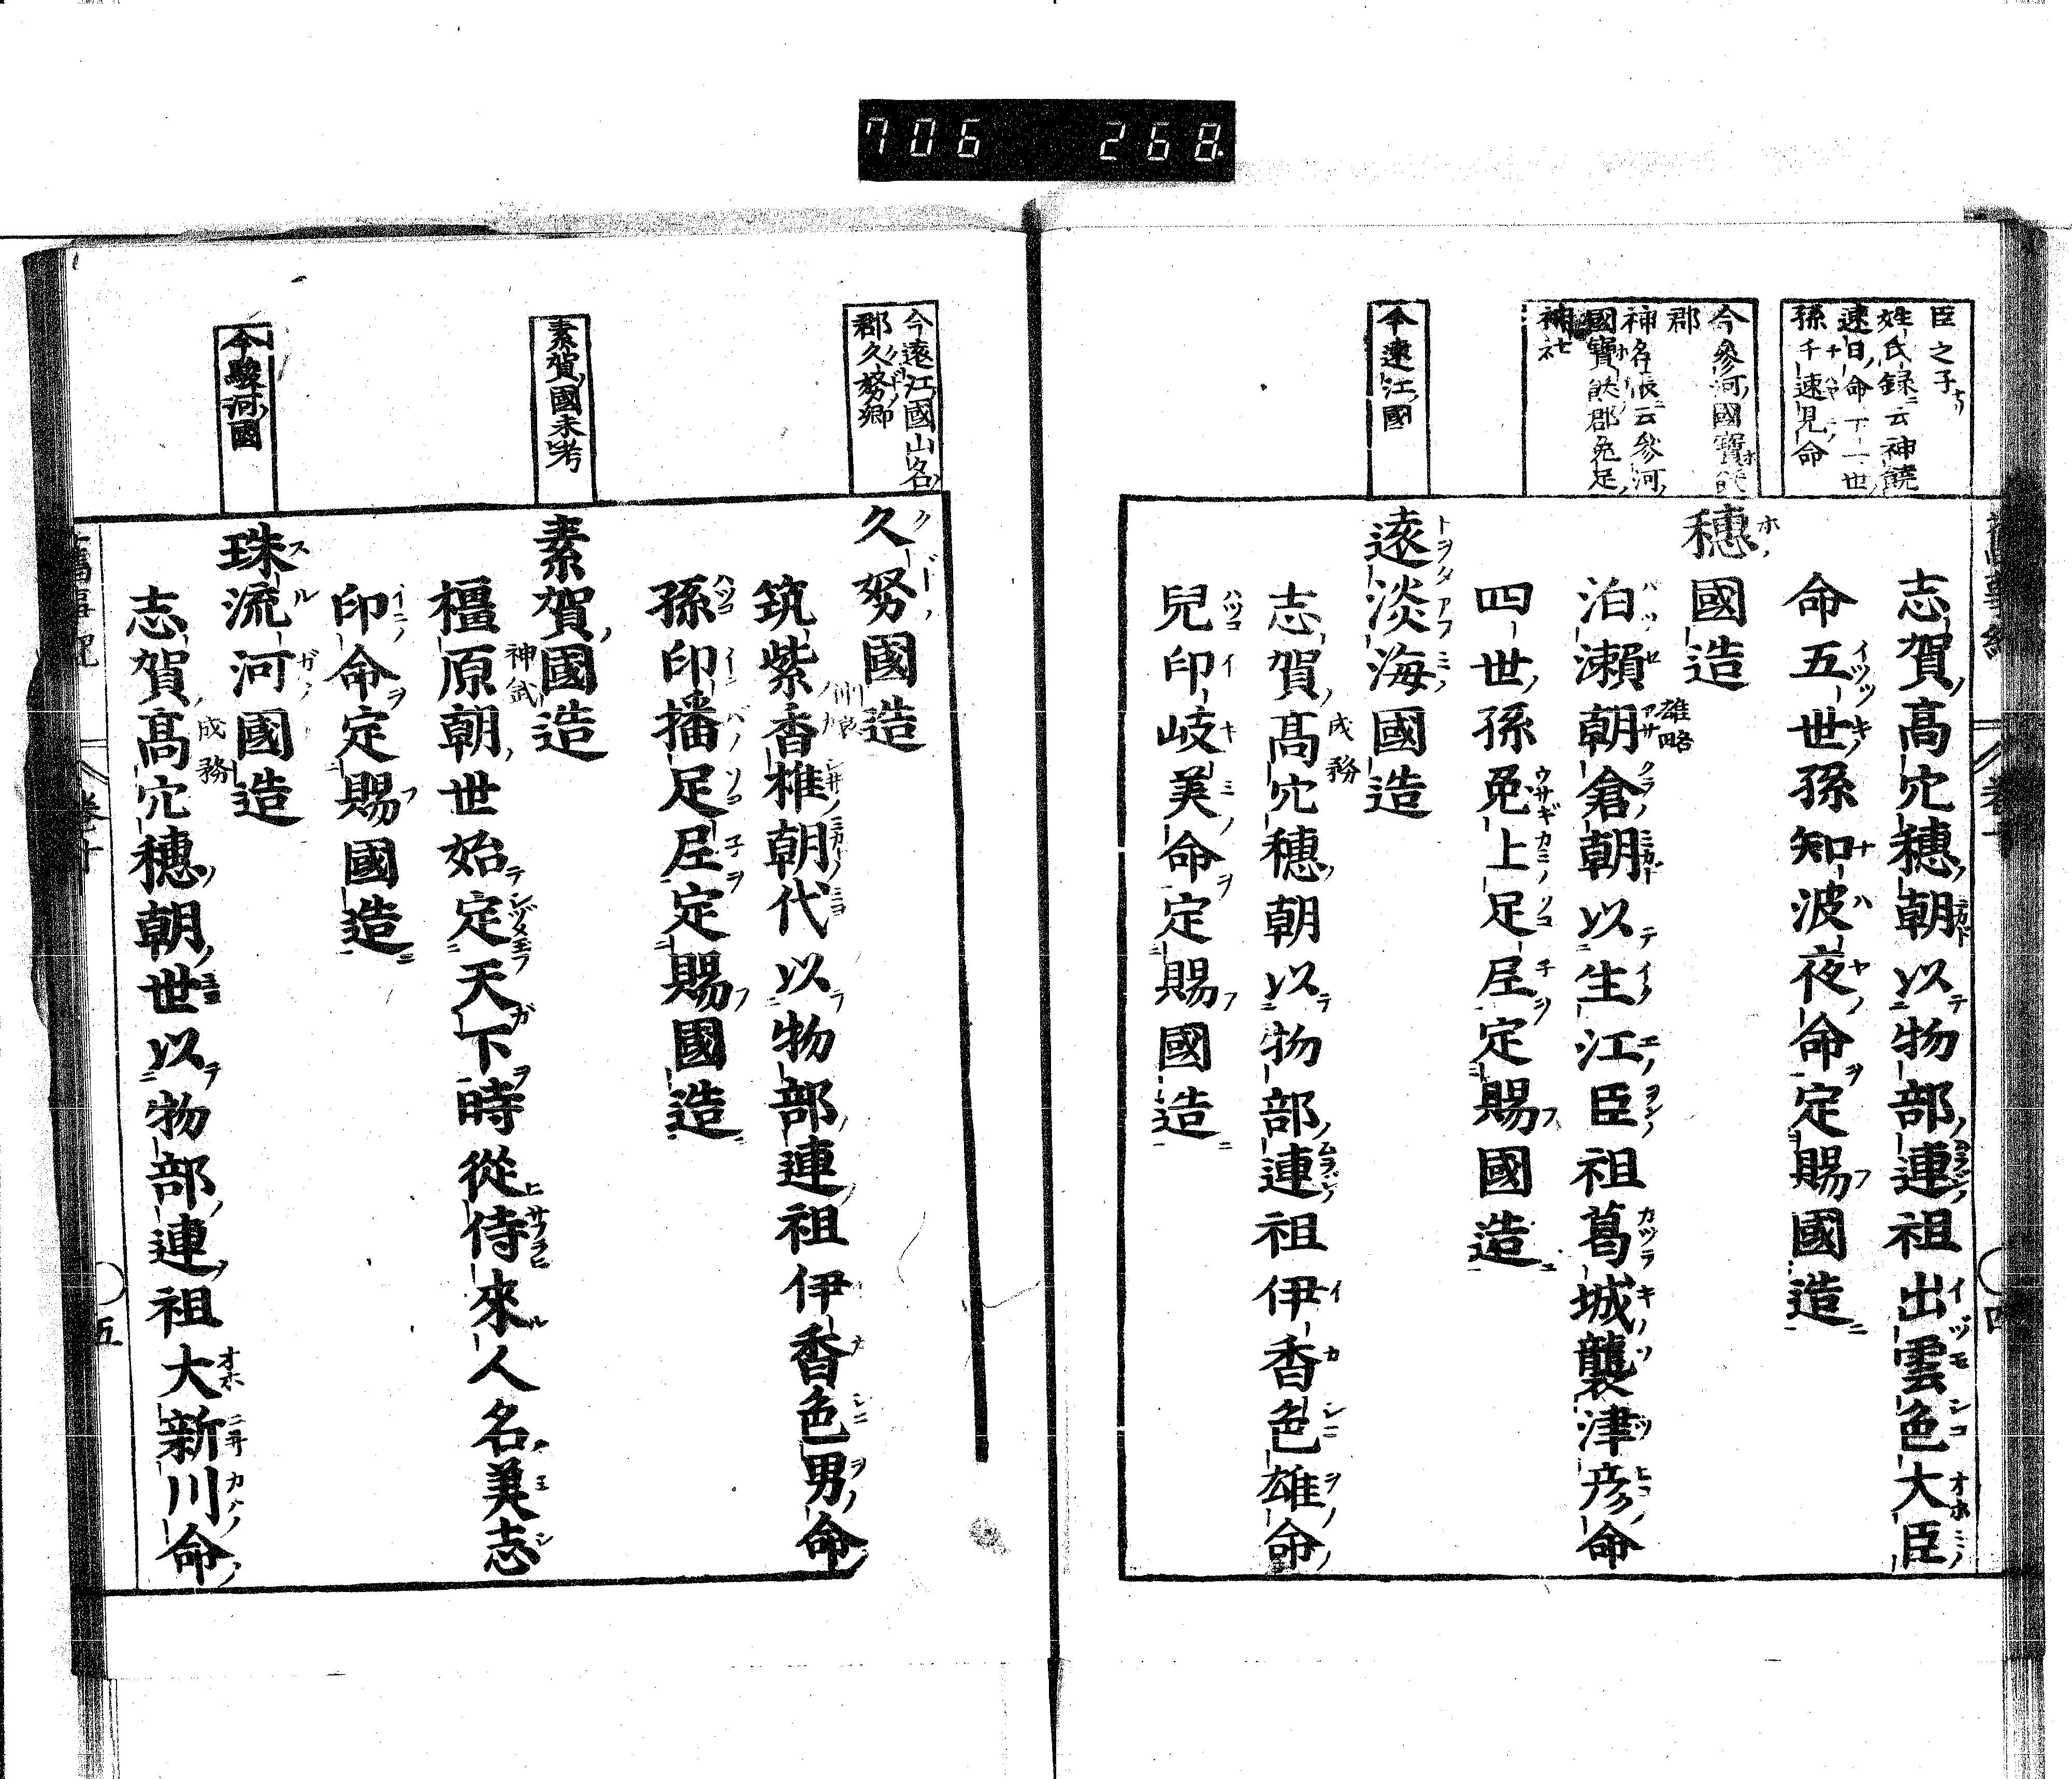 706 268
臣之子
姓氏録云神饒
速日命十一世
孫千速見命
今參河國寶飫
郡
神名帳云參河
國寶飫郡菟足
神社
今遠江國
志賀髙穴穗朝以物部連祖出雲色大臣
命五世孫知波夜命定賜國造
穗國造
泊瀬朝倉朝以生江臣祖葛城襲津彦命
雄略
四世孫菟上足尼定賜國造
遠淡海國造
志賀髙穴穗朝以物部連祖伊香色雄命
成務
兒印岐美命定賜國造
今遠江國山名
郡久努郷
素賀國未考
今駿河國
久努國造
筑紫香椎朝代以物部連祖伊香色男命
孫印播足尼定賜國造
素賀國造
橿原朝世始定天下時從侍來人名美志
神武
印命定賜國造
珠流河國造
志賀髙穴穗朝世以物部連祖大新川命
成務
五